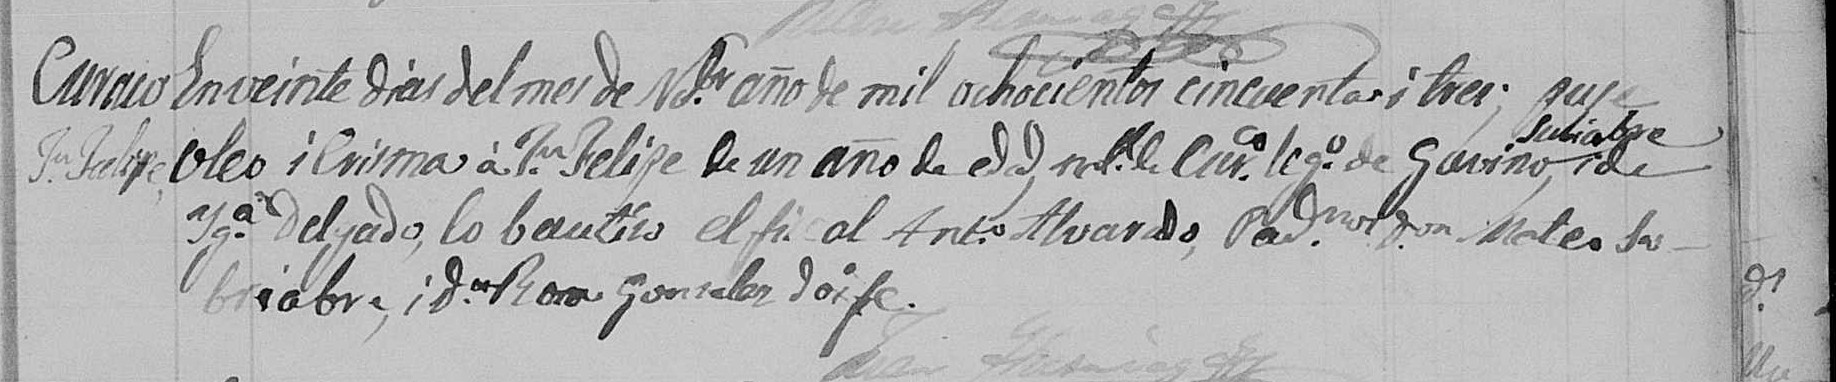 Curaco En veinte dias del mes de Nbr.e año de mil ochocientos cincuenta i tres; puse
Jn Felipe, oleo i Crisma à Jn Felipe de un año de edd, nl. de Cur.co leg.o de Gavino Subiabre, i de
Ig.a Delgado, lo bautiso el fiscal Ant.o Alvarado, Pad.nos don Mateo Su-
briabre, i d.a Rosa Gonzalez doi fe.
Juan